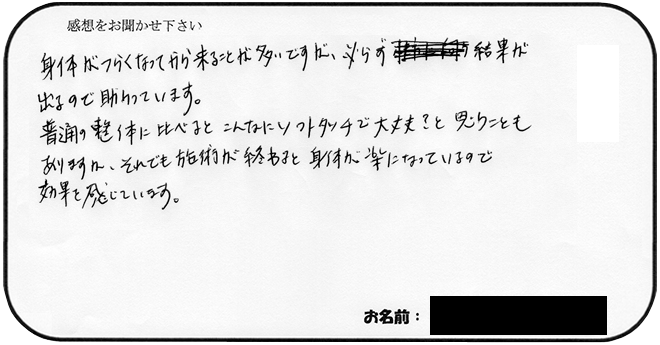 感想をお聞かせ下さい
身体がつらくなってから来ることが多いですが、必らず 結果が
出るので助かっています。
普通の整体に比べると こんなにソフトタッチで大丈夫?と思うことも
ありますが、それでも施術が終わると身体が楽になっているので
効果を感じています。
お名前: